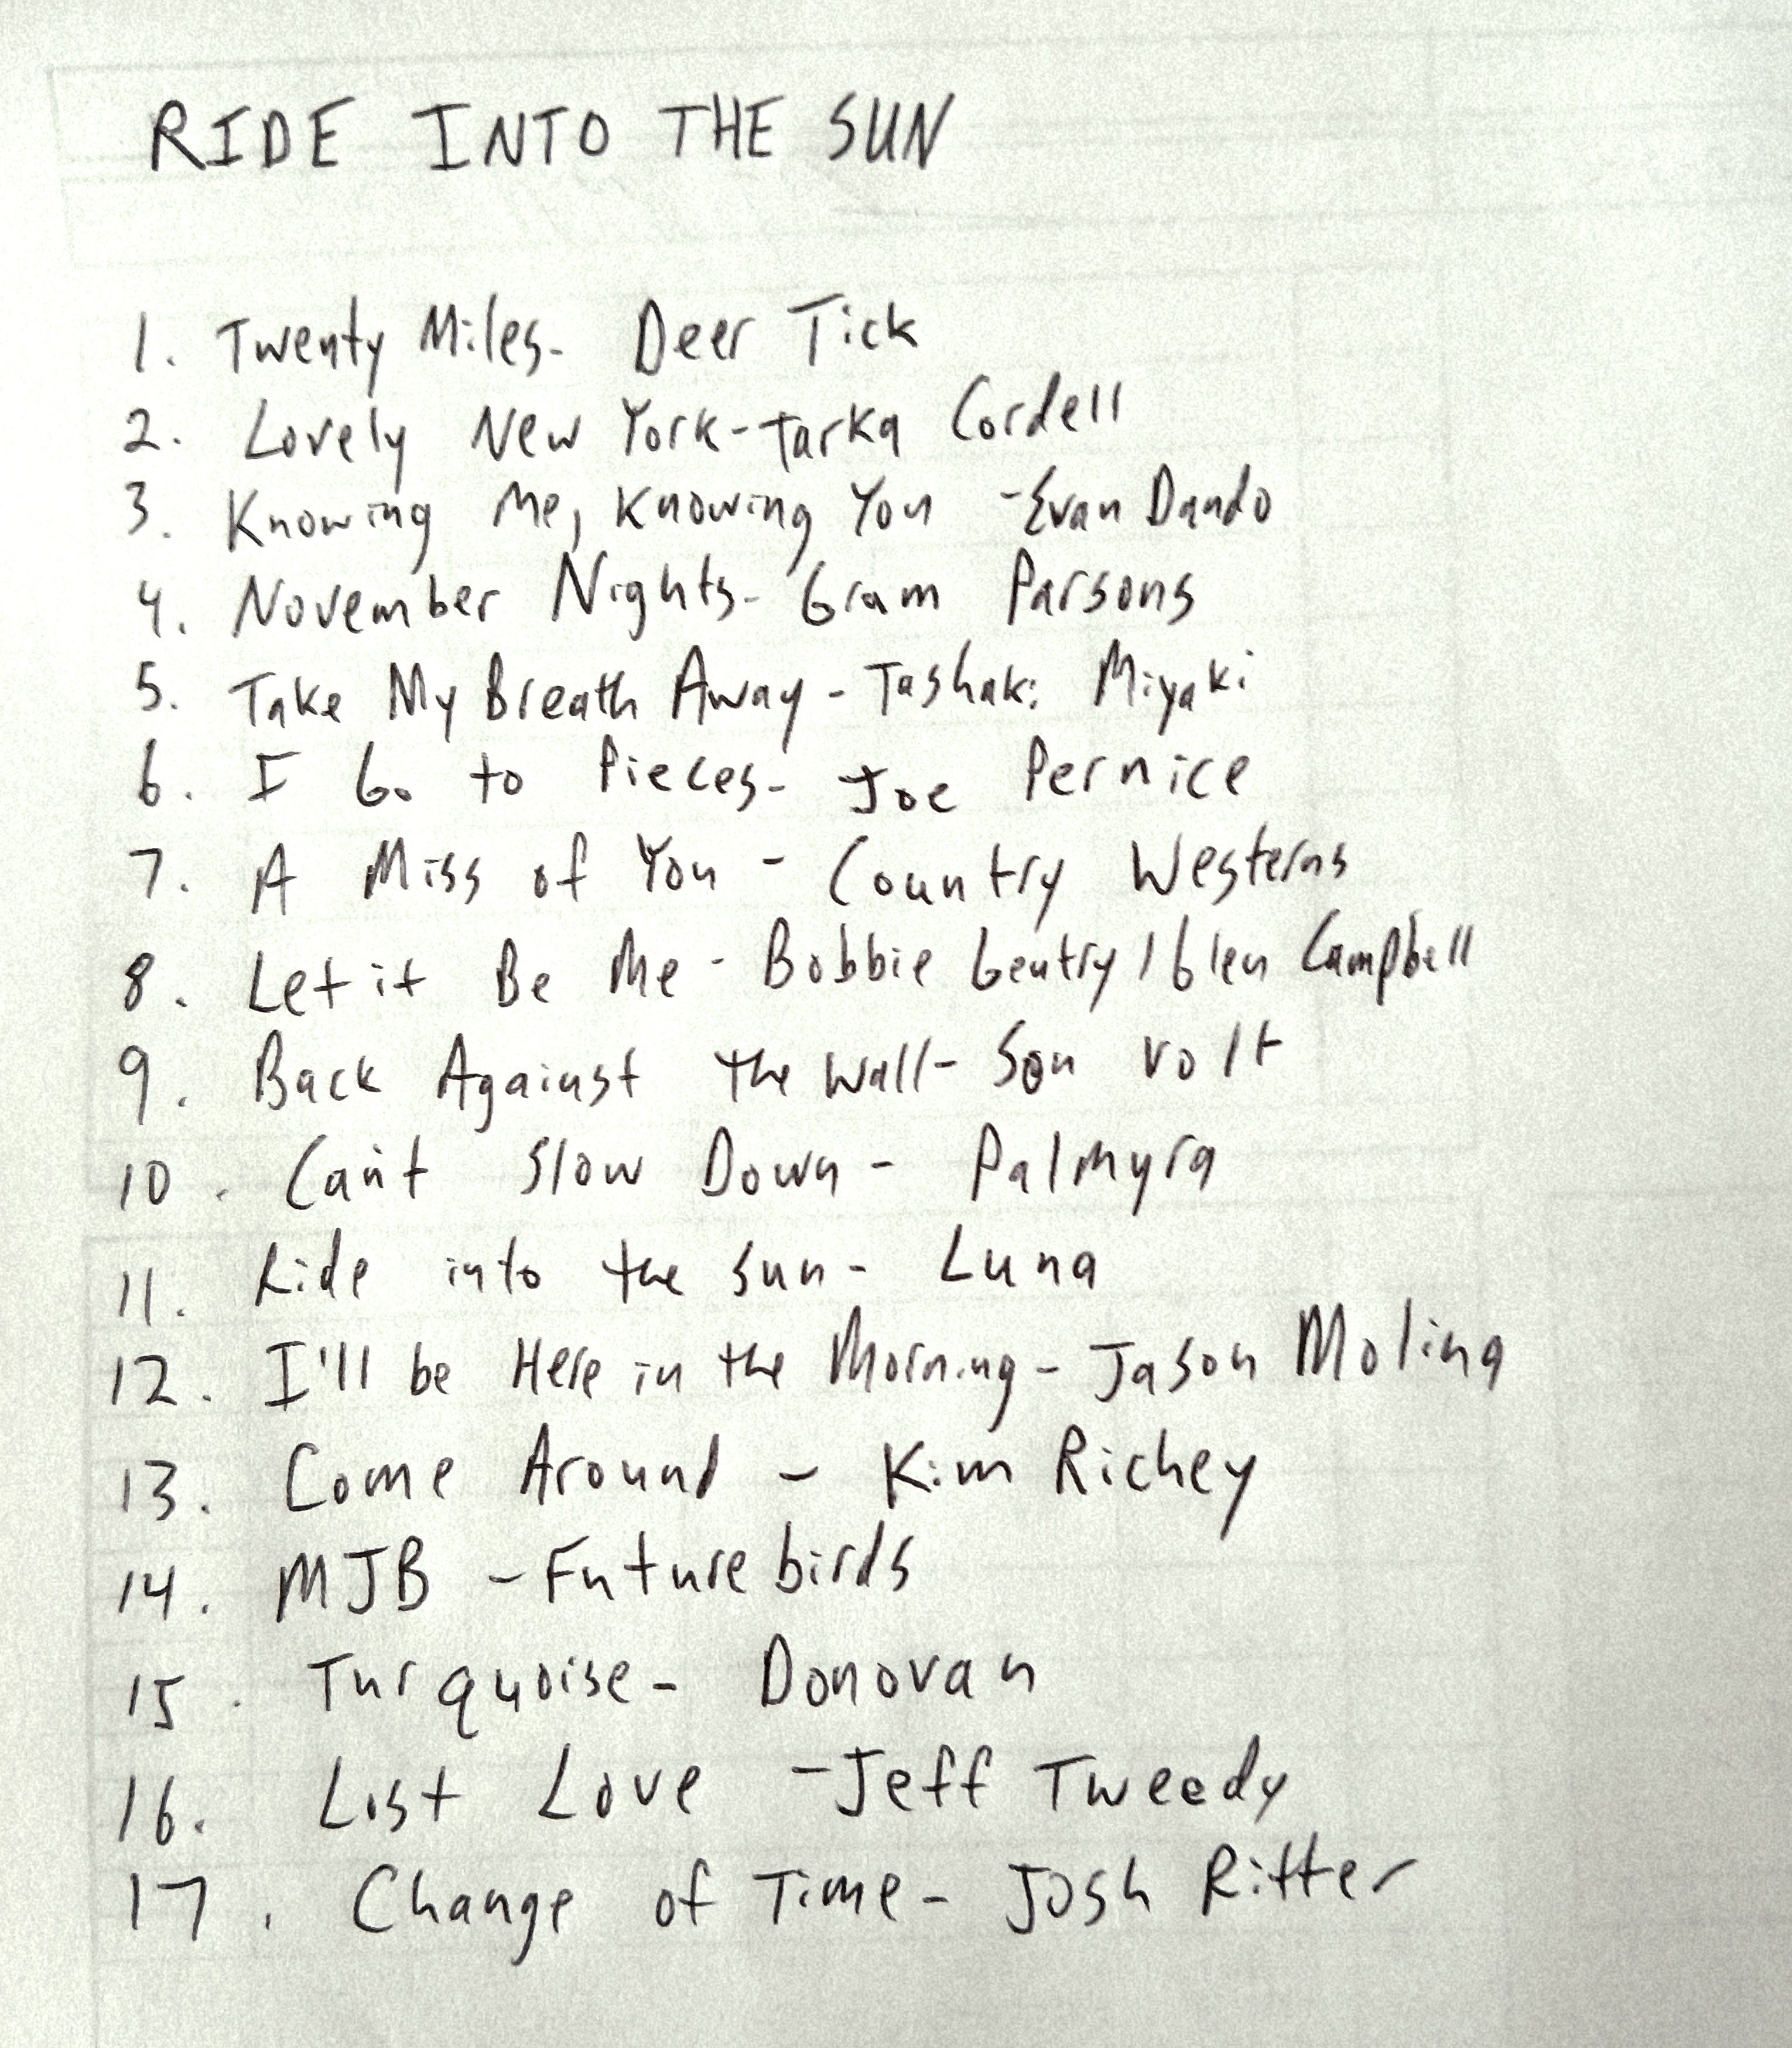 RIDE INTO THE SUN
1. Twenty Miles- Deer Tick
2. Lovely New York-Tarka Cordell
3. Knowing Me, Knowing You -Evan Dando
4. November Nights- Gram Parsons
5. Take My Breath Away - Tashaki Miyaki
6. I Go to Pieces- Joe Pernice
7. A Miss of You - Country Westerns
8. Let it Be Me - Bobbie Gentry / Glen Campbell
9. Back Against the Wall- Son Volt
10. Can't Slow Down - Palmyra
11. Ride into the Sun- Luna
12. I'll be Here in the Morning- Jason Molina
13. Come Around - Kim Richey
14. MJB - Futurebirds
15. Turquoise- Donovan
16. Lost Love -Jeff Tweedy
17. Change of Time- Josh Ritter